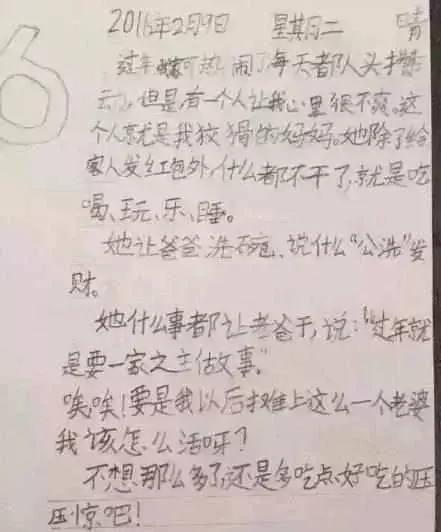 2016年2月9日 星期二 晴
过年可热闹了每天都人头攒
云,但是有一个人让我心里很不爽。这
个人就是我狡猾的妈妈。她除了给
家人发红包外,什么都不干了,就是吃
喝、玩、乐、睡。
她让爸爸洗碗、说什么“公洗”发
财。
她什么事都让老爸干,说:“过年就
是要一家之主做事。”
唉唉!要是我以后摊上这么一个老婆
我该怎么活呀?
不想那么多了,还是多吃点好吃的压
压惊吧!
6